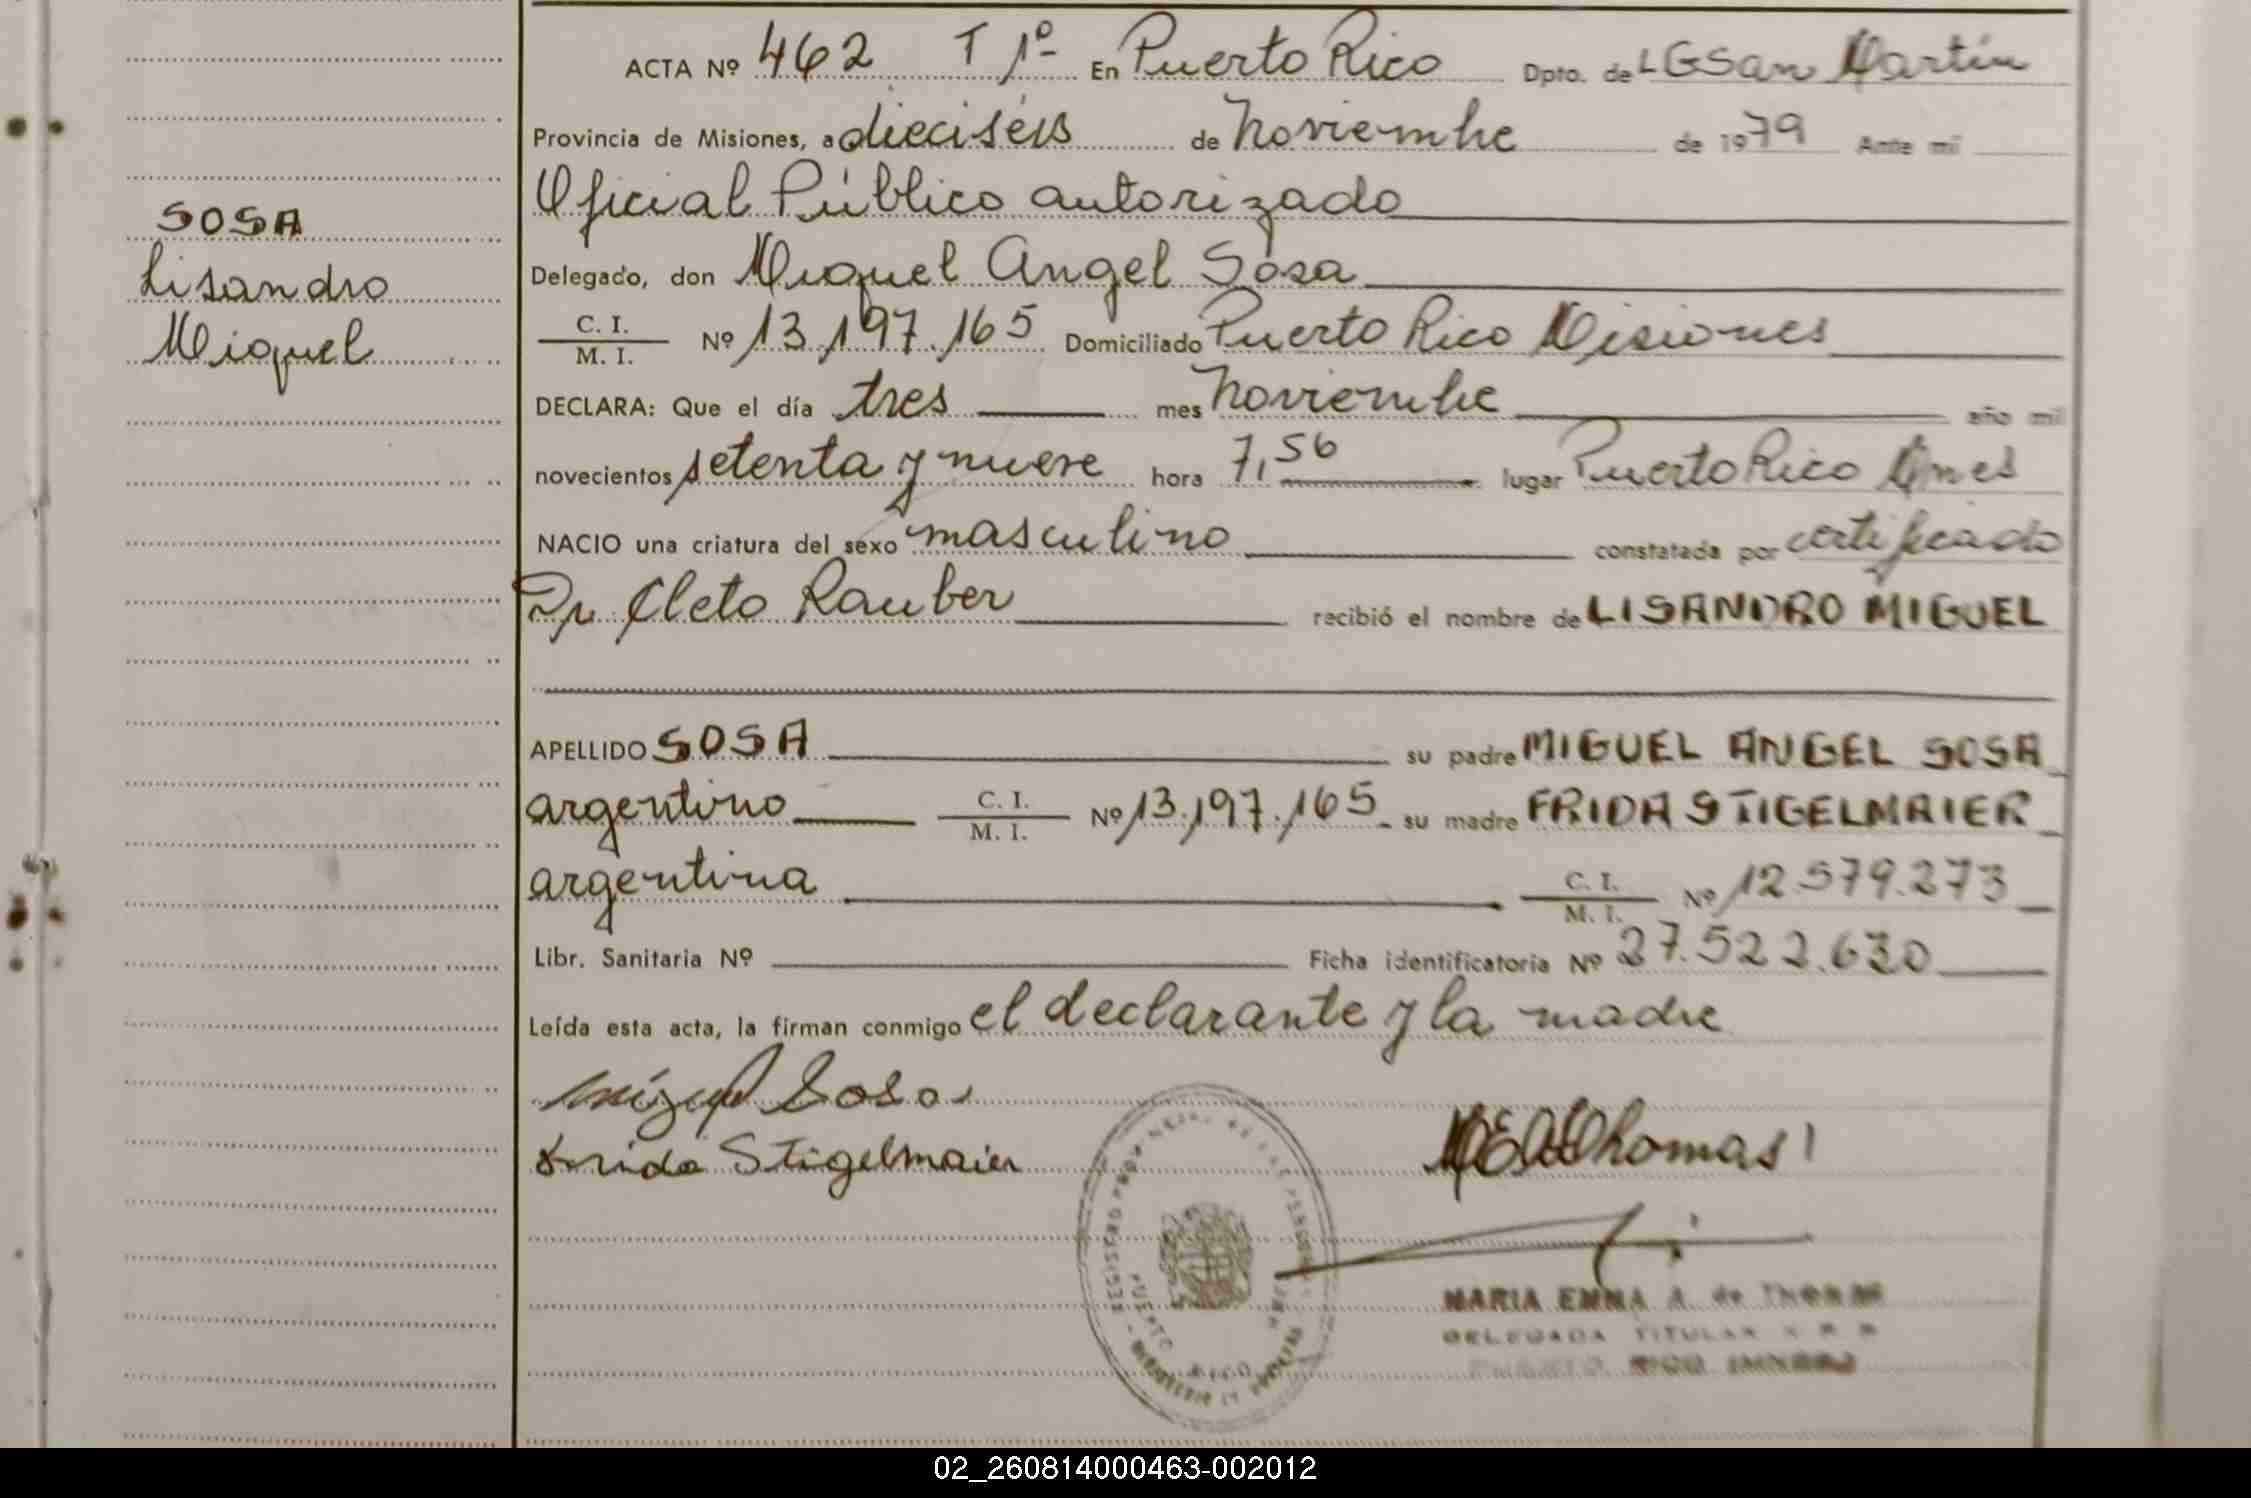 ACTA Nº 462 T 1º En Puerto Rico Dpto. de LGSan Martín
Provincia de Misiones, a dieciséis de Noviembre de 1979 Ante mí
Oficial Público autorizado
SOSA
Lisandro
Miguel
Delegado, don Miguel Angel Sosa
C. I.
M. I. Nº 13.197.165 Domiciliado Puerto Rico Misiones
DECLARA: Que el día tres mes Noviembre año mil
novecientos setenta y nueve hora 7,56 lugar Puerto Rico Mnes
NACIO una criatura del sexo masculino constatada por certificado
Dr Cleto Rauber recibió el nombre de LISANDRO MIGUEL
APELLIDO SOSA su padre MIGUEL ANGEL SOSA
argentino C. I.
M. I. Nº 13.197.165 su madre FRIDA STIGELMAIER
argentina C. I.
M. I. Nº 12.579.273
Libr. Sanitaria Nº Ficha identificatoria Nº 27.522.630
Leída esta acta, la firman conmigo el declarante y la madre
Miguel Sosa
Frida Stigelmaier
Thomas
PUERTO RICO
MARIA EMMA A. de THOMAS
DELEGADA TITULAR
PUERTO RICO (MNES)
02_260814000463-002012